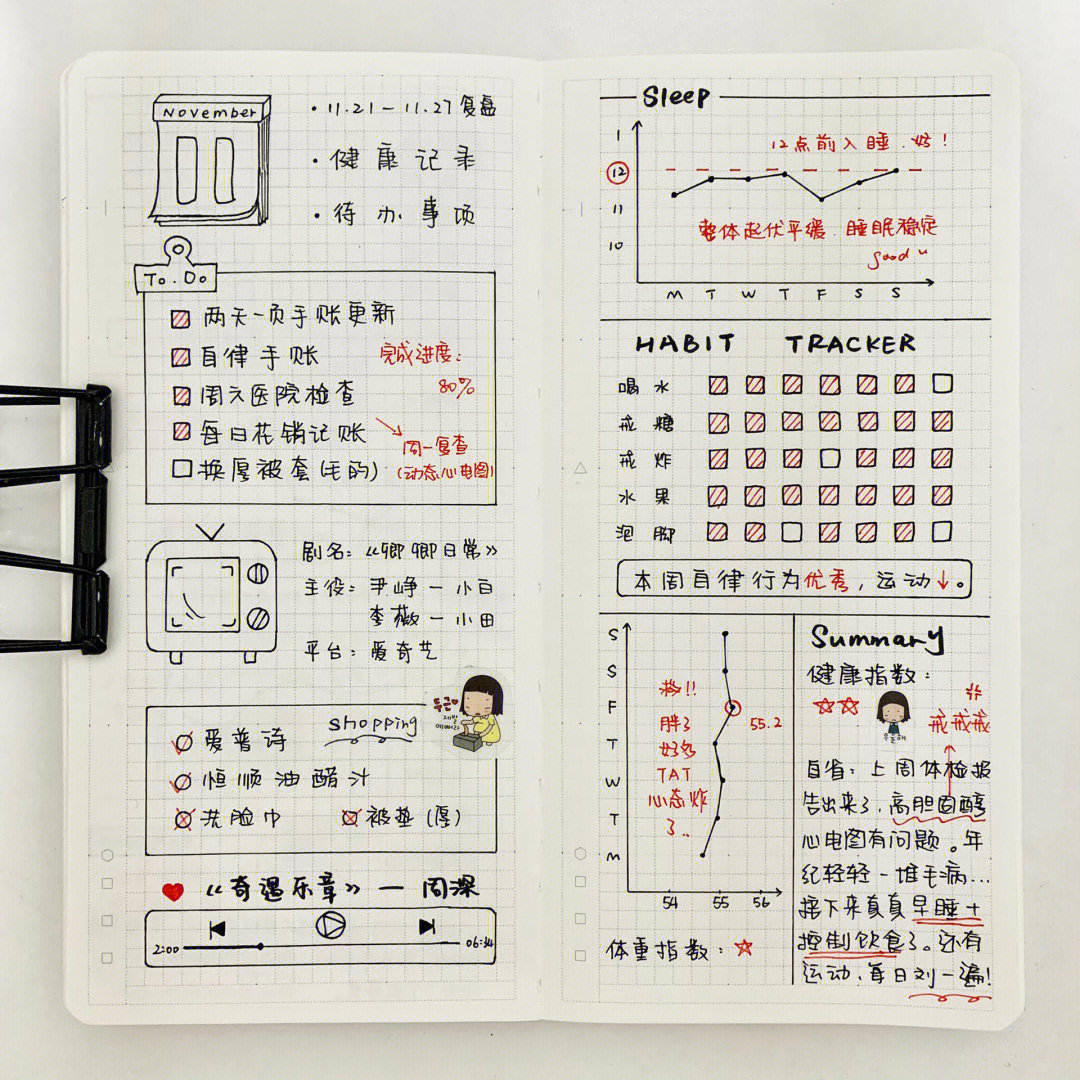 November
· 11.21 — 11.27 复盘
· 健康记录
· 待办事项
To.Do
两天一页手账更新
自律手账
周六医院检查
每日花销记账
换厚被套(毛的)
完成进度:
80%
周一复查
(动态心电图)
剧名:《卿卿日常》
主役:尹峥 — 小白
李薇 — 小田
平台:爱奇艺
shopping
爱普诗
恒顺油醋汁
洗脸巾
被垫(厚)
두근
제발
예뻐져라
《奇遇乐章》— 周深
2:00
06:34
Sleep
1
12
11
10
12点前入睡.好!
整体起伏平缓.睡眠稳定
good
M T W T F S S
HABIT TRACKER
喝水
戒糖
戒炸
水果
泡脚
本周自律行为优秀,运动↓。
S
S
F
T
W
T
M
54 55 56
55.2
胖了
好多
TAT
心态炸
了..
体重指数:
Summary
健康指数:
우울해
炸
戒戒戒
自省:上周体检报
告出来了,高胆固醇
心电图有问题。年
纪轻轻一堆毛病...
接下来真真早睡+
控制饮食了。还有
运动,每日刘一遍!